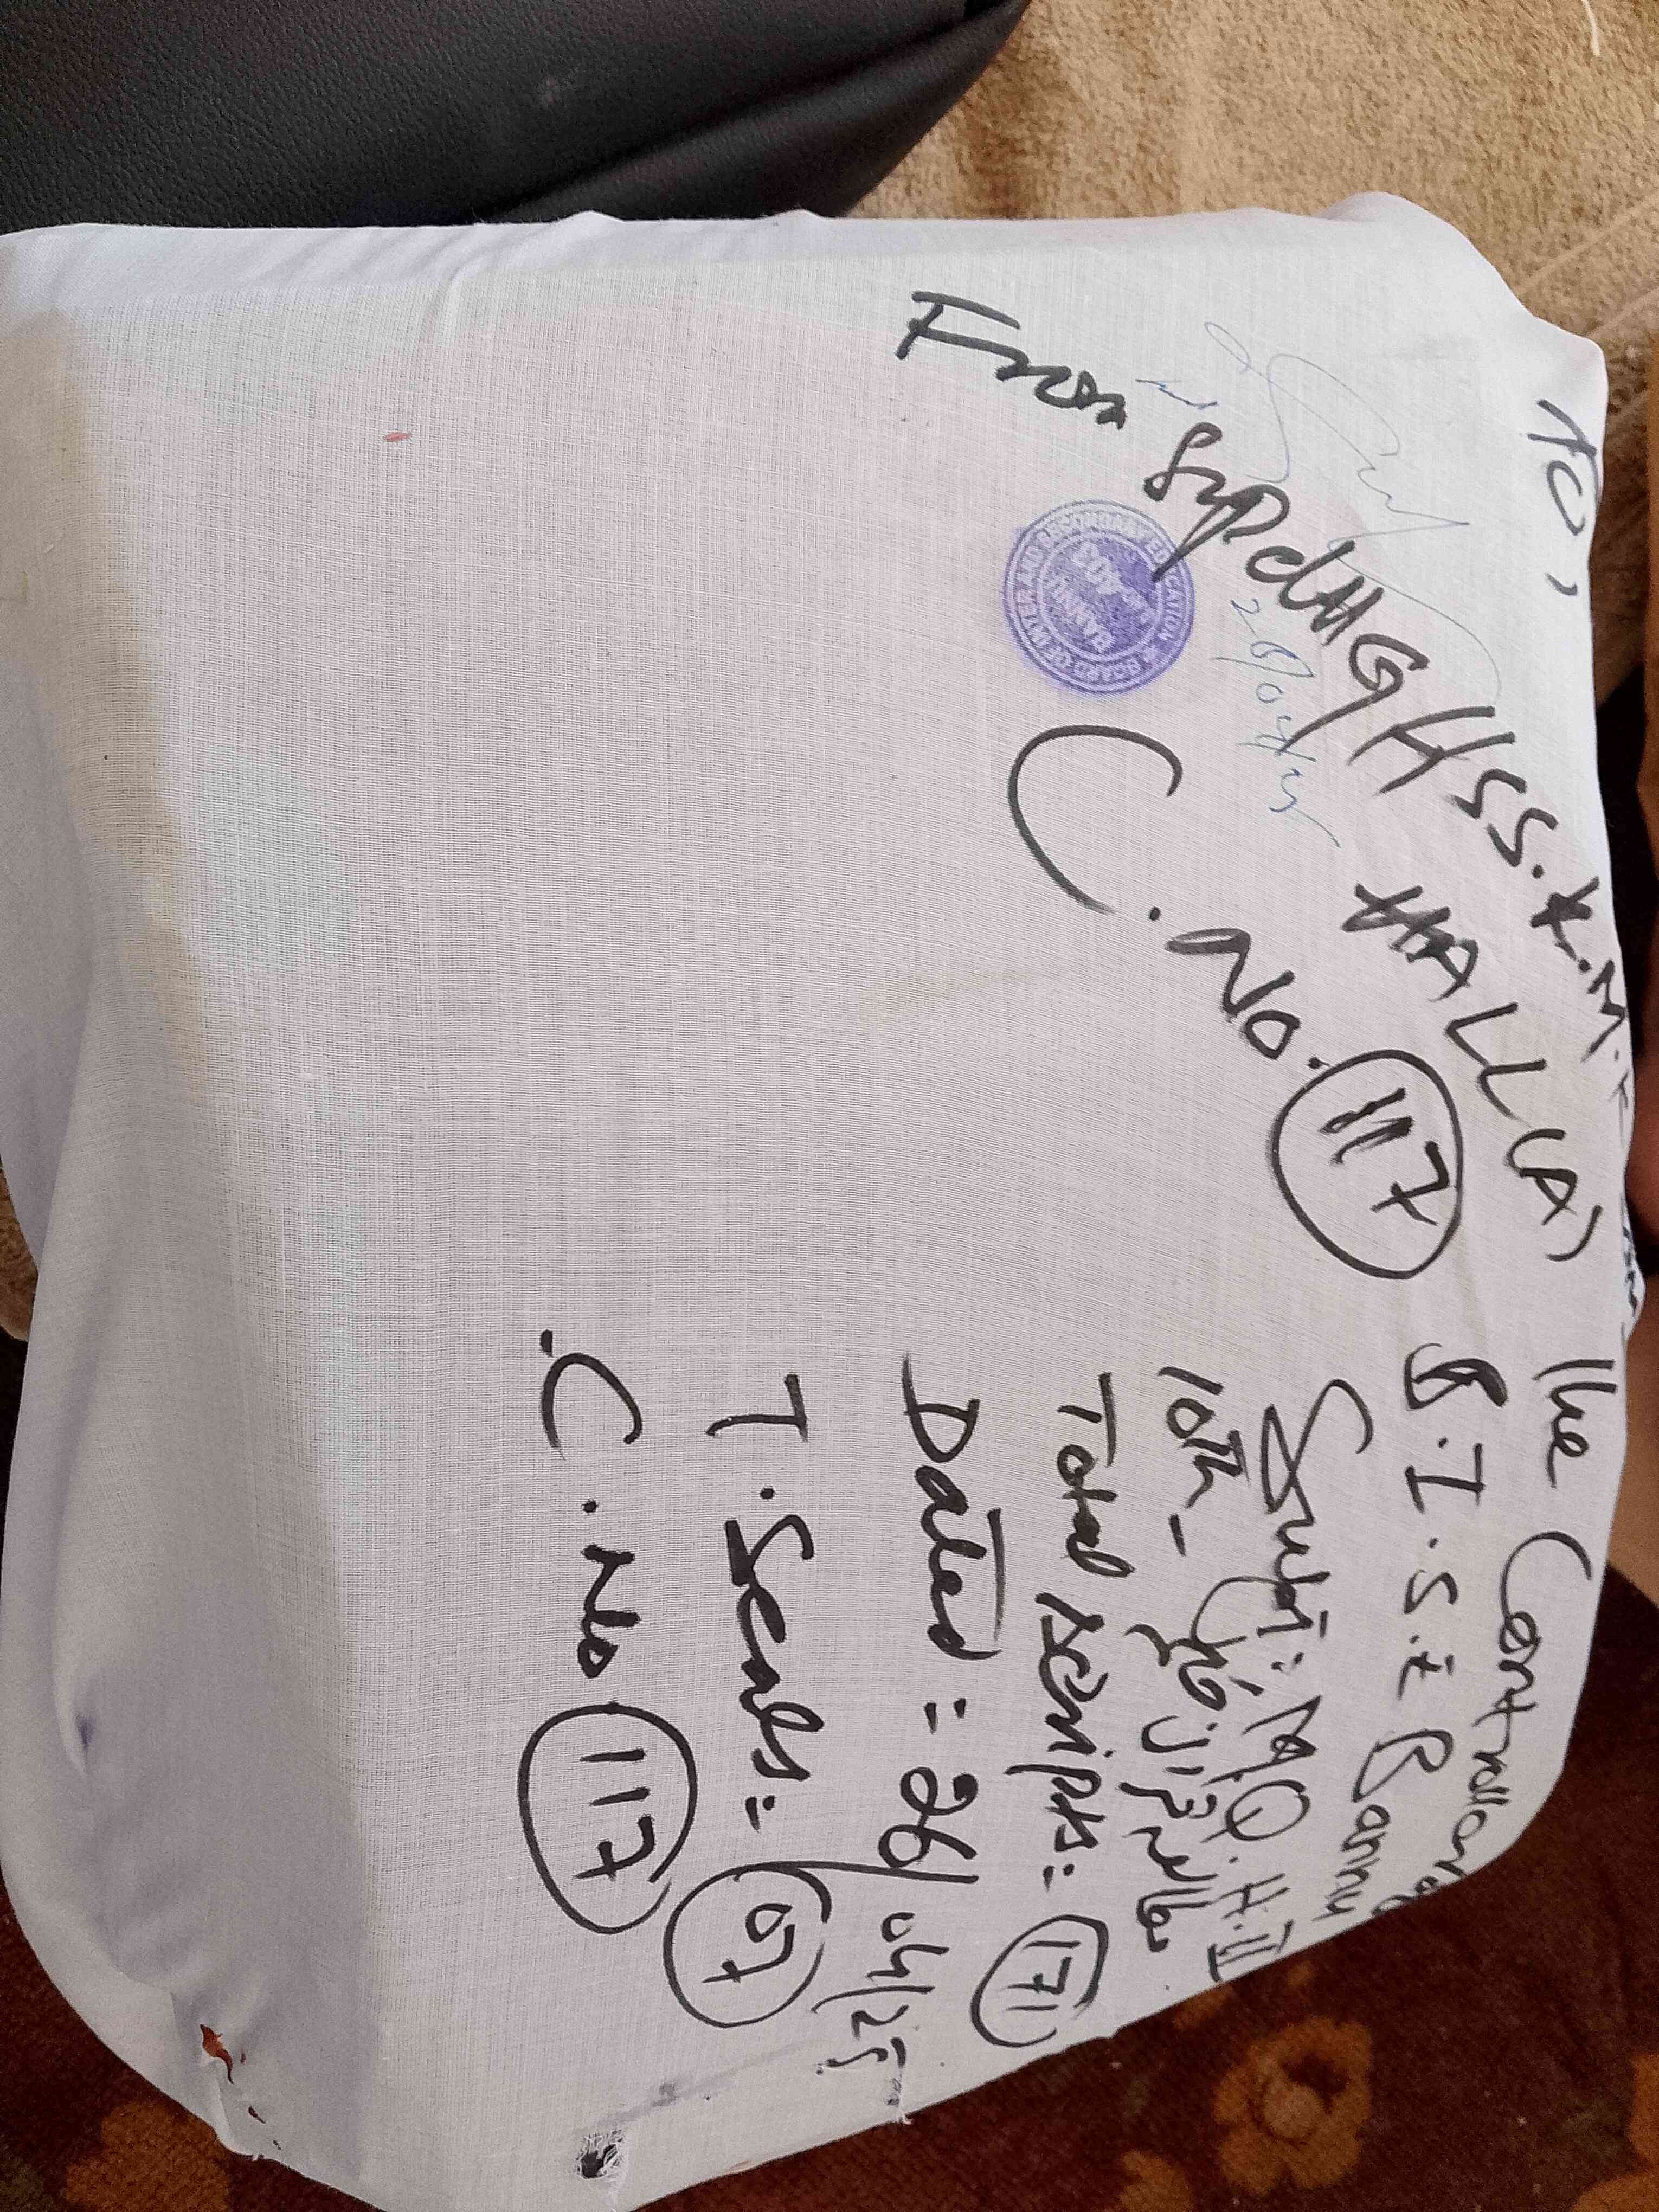 To,
The Controller of
B.I.S.E Bannu
Subt: M.Q. H. II
10th - مطالعہ قرآن حکیم
Total scripts: 171
Dated = 26/04/25
T. Seals = 07
C. No 117
From Supdt GHSS. K.M.K
HALL (A)
C. No. 117
BOARD OF INTER AND SECONDARY EDUCATION
BANNU